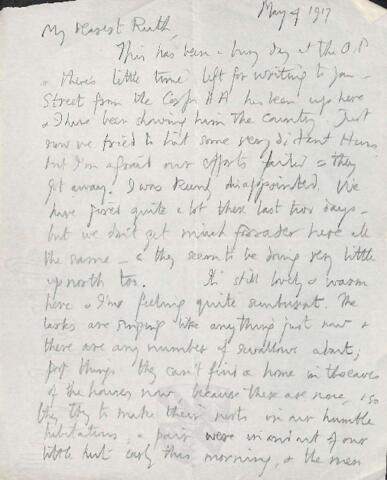 May 4 1917
My dearest Ruth,
This has been a busy day at the O.P
& there's little time left for writing to you –
Street from the Corps H A has been up here
& I have been showing him the country. Just
now we tried to hit some very distant Huns
but I'm afraid our efforts failed & they
got away. I was disappointed. We
have fired quite a lot these last two days –
but we don't get much forrader here all
the same – & they seem to be doing very little
up north too. It's still lovely & warm
here & I'm feeling quite sunburnt. The
larks are singing like anything just now &
there are any number of swallows about;
poor things they can't find a home in the eaves
of the houses now, because there are none, & so
they try to make their nests in our humble
habitations; a pair were in and out of our
little hut early this morning, & the men